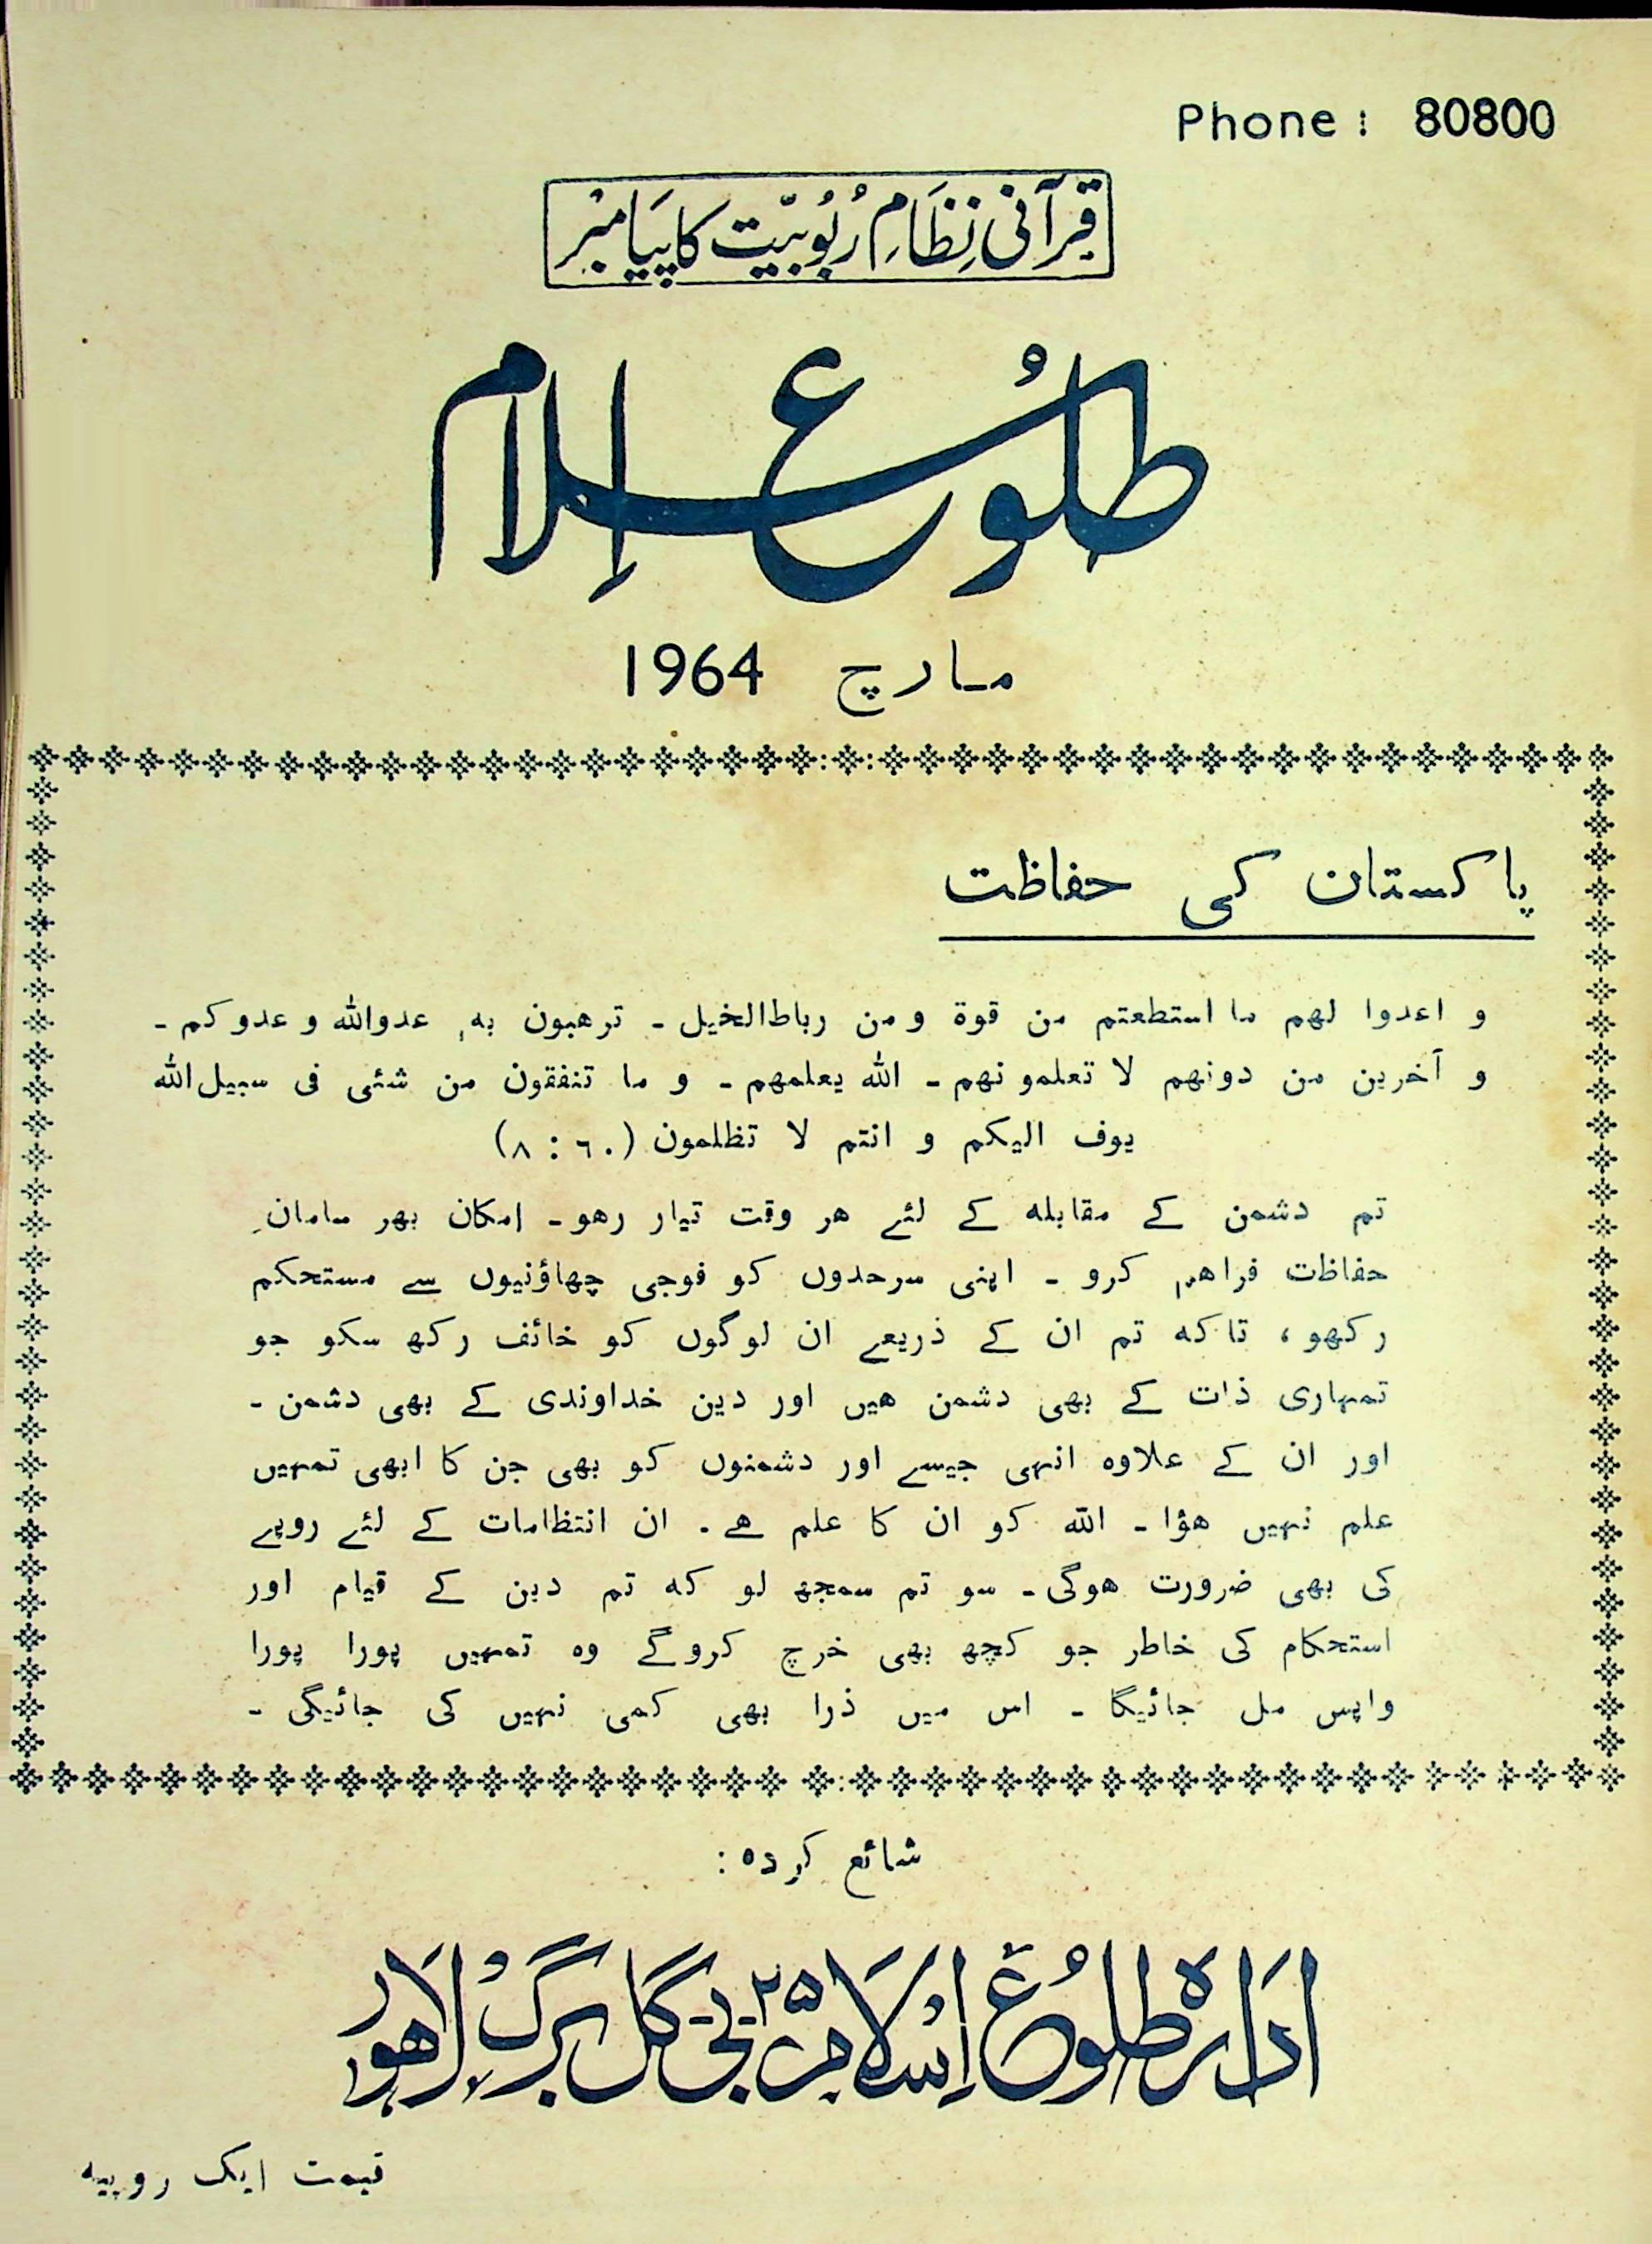 Phone : 80800
قرآنی نِظَامِ رُبُوبیّت کا پیَامبْر
طلوُعِ اسلام
مارچ 1964
پاکستان کی حفاظت
و اعدوا لھم ما استطعتم من قوۃ ومن رباط الخیل ۔ ترھبون بہ، عدواللہ و عدوکم ۔
و آخرین من دونھم لا تعلمونھم ۔ اللہ یعلمھم ۔ و ما تنفقون من شئی فی سبیل اللہ
یوف الیکم و انتم لا تظلمون (٨ : ٦٠)
تم دشمن کے مقابلہ کے لئے ھر وقت تیار رھو ۔ امکان بھر سامانِ
حفاظت فراھم کرو ۔ اپنی سرحدوں کو فوجی چھاؤنیوں سے مستحکم
رکھو، تا کہ تم ان کے ذریعے ان لوگوں کو خائف رکھ سکو جو
تمہاری ذات کے بھی دشمن ھیں اور دین خداوندی کے بھی دشمن ۔
اور ان کے علاوہ انہی جیسے اور دشمنوں کو بھی جن کا ابھی تمہیں
علم نہیں ھؤا ۔ اللہ کو ان کا علم ھے ۔ ان انتظامات کے لئے روپے
کی بھی ضرورت ھوگی ۔ سو تم سمجھ لو کہ تم دین کے قیام اور
استحکام کی خاطر جو کچھ بھی خرچ کروگے وہ تمہیں پورا پورا
واپس مل جائیگا ۔ اس میں ذرا بھی کمی نہیں کی جائیگی ۔
شائع کردہ :
اِدَارَہ طلُوُعِ اِسْلَام ۲۵ بی۔ گلبرگْ لاھور
قیمت ایک روپیہ